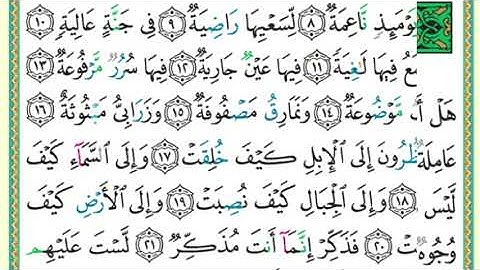 وْمَئِذٍ نَّاعِمَةٌ ٨ لِّسَعْيِهَا رَاضِيَةٌ ٩ فِي جَنَّةٍ عَالِيَةٍ ١٠
مَعُ فِيهَا لَٰغِيَةً ١١ فِيهَا عَيْنٌ جَارِيَةٌ ١٢ فِيهَا سُرُرٌ مَّرْفُوعَةٌ ١٣
هَلْ أَ مَّوْضُوعَةٌ ١٤ وَنَمَارِقُ مَصْفُوفَةٌ ١٥ وَزَرَابِيُّ مَبْثُوثَةٌ ١٦
عَامِلَةٌ ظُرُونَ إِلَى الْإِبِلِ كَيْفَ خُلِقَتْ ١٧ وَإِلَى السَّمَآءِ كَيْفَ
لَيْسَ ١٨ وَإِلَى الْجِبَالِ كَيْفَ نُصِبَتْ ١٩ وَإِلَى الْأَرْضِ كَيْفَ
وُجُوهٌ تْ ٢٠ فَذَكِّرْ إِنَّمَآ أَنتَ مُذَكِّرٌ ٢١ لَّسْتَ عَلَيْهِم